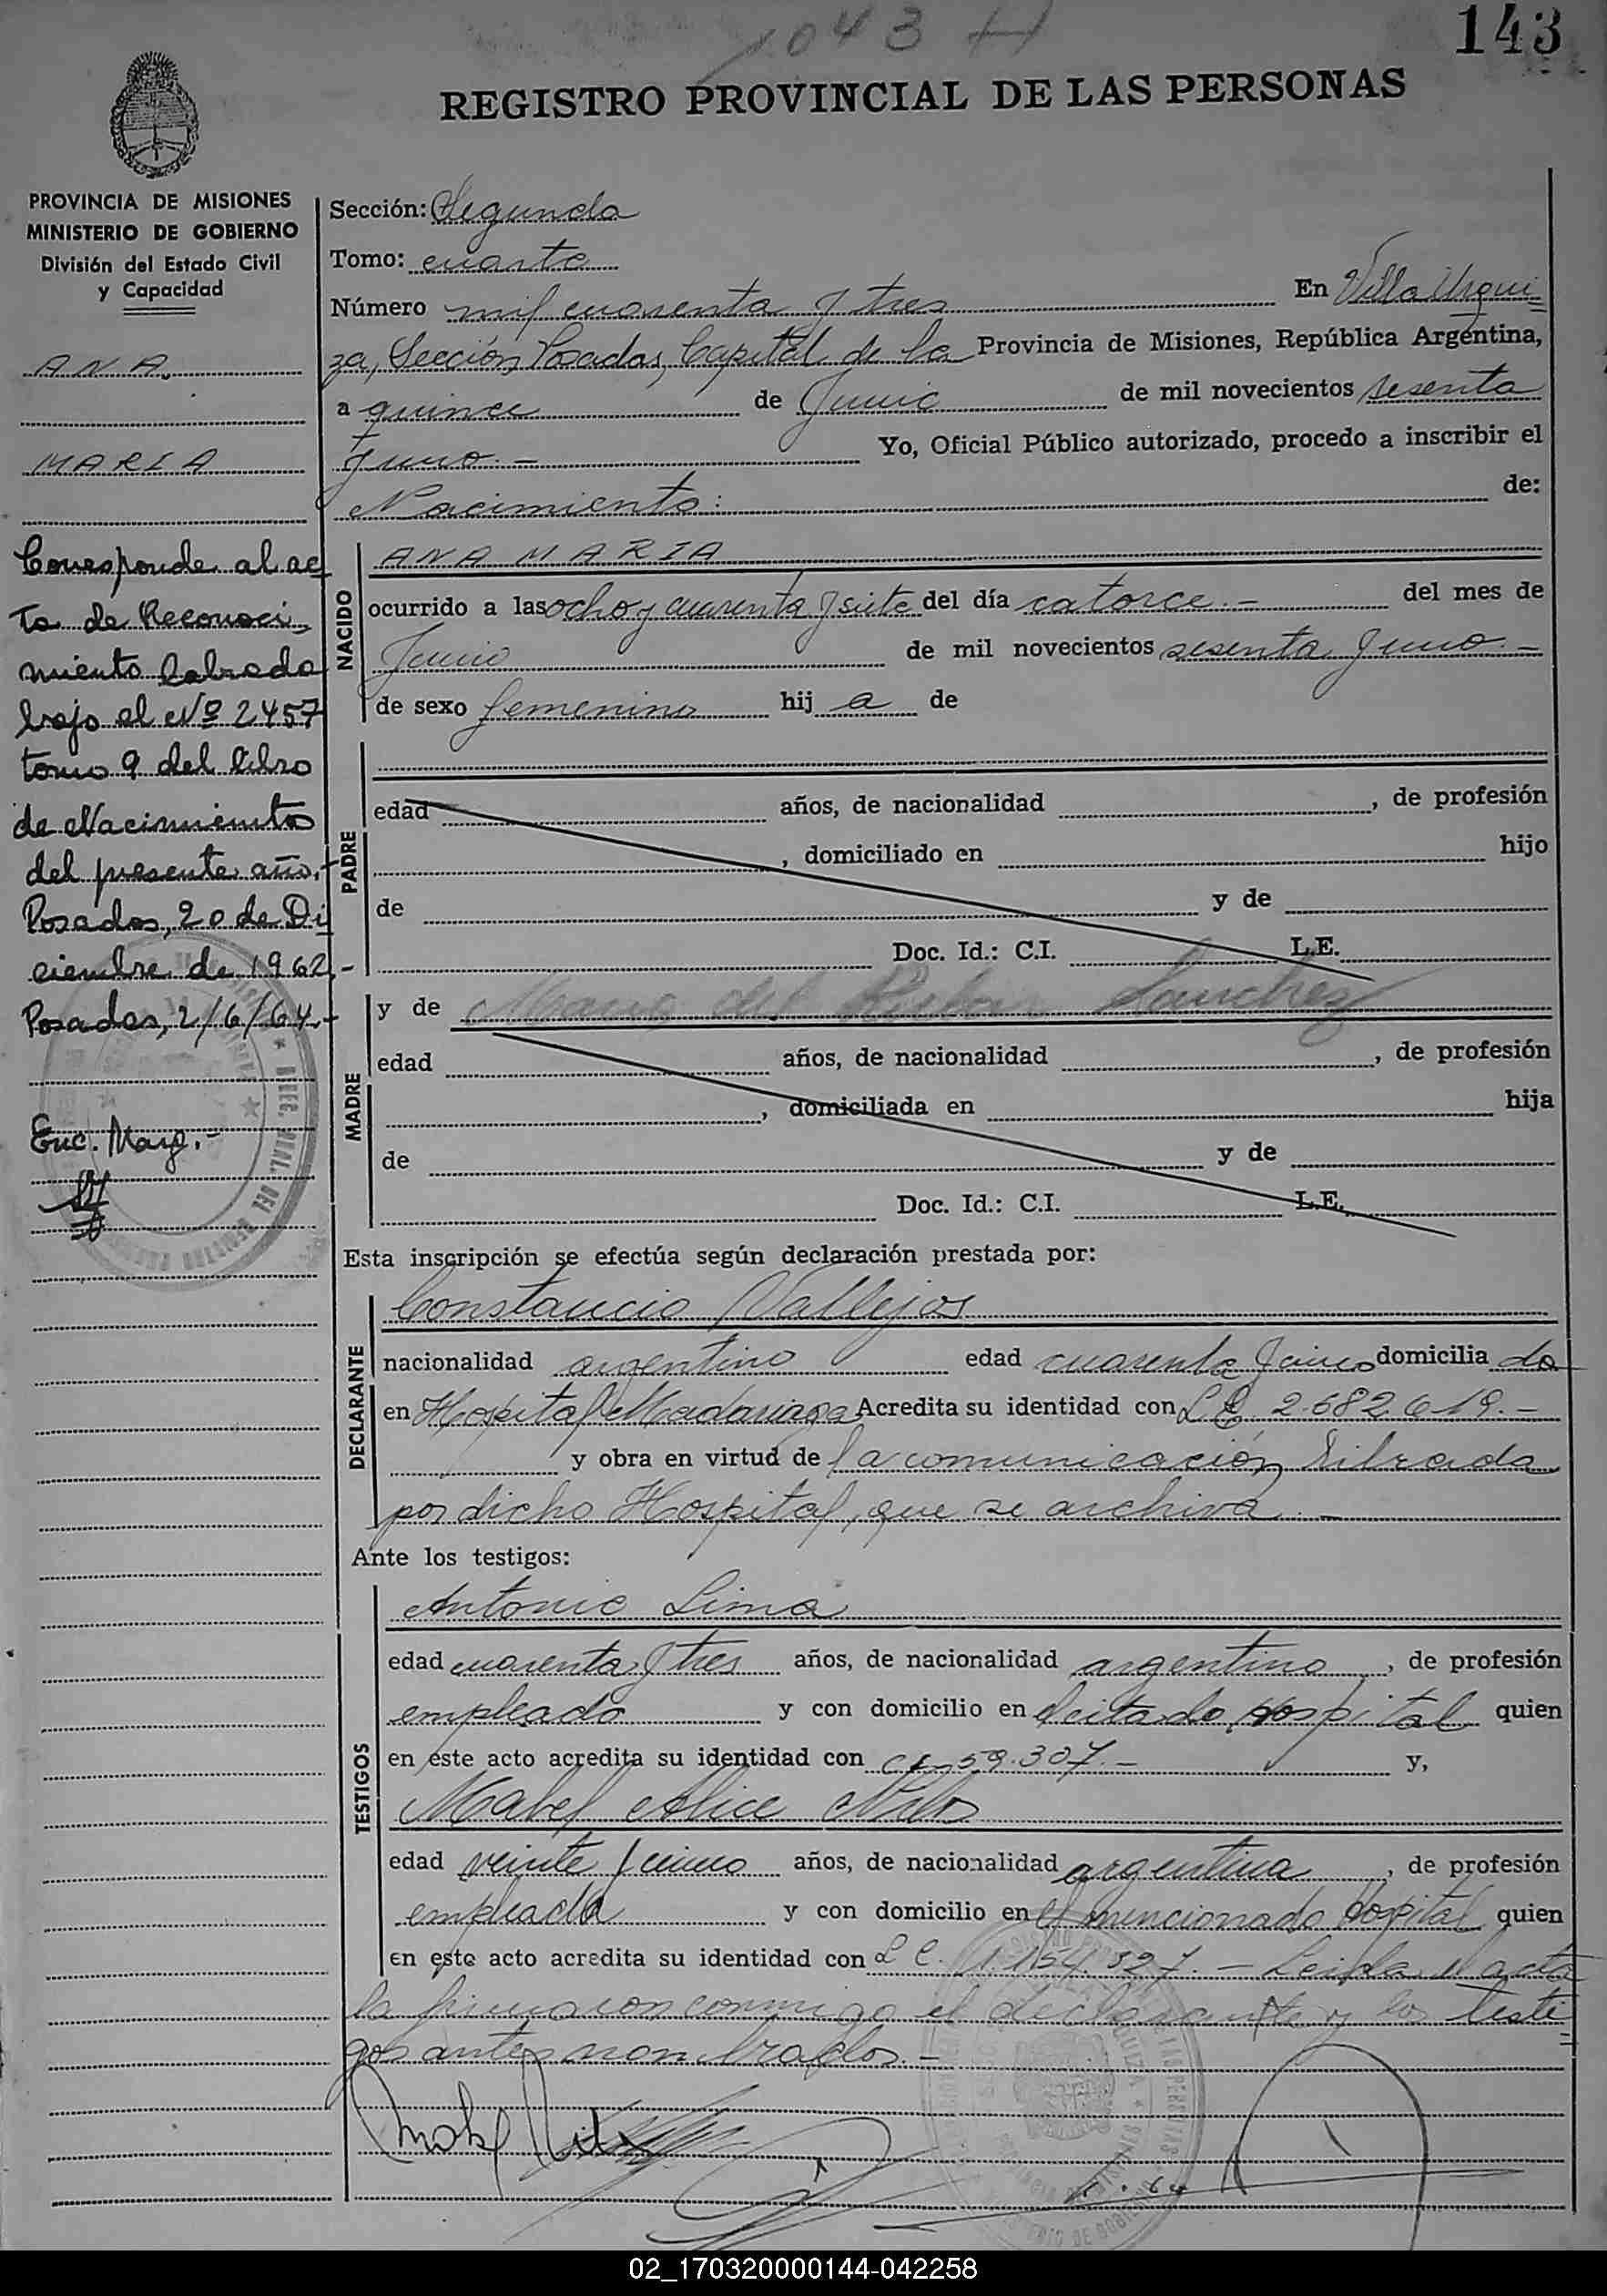 1043 H
143
REGISTRO PROVINCIAL DE LAS PERSONAS
PROVINCIA DE MISIONES
MINISTERIO DE GOBIERNO
División del Estado Civil
y Capacidad
ANA
MARIA
Corresponde al ac
ta de Reconoci
miento labrada
bajo el Nº 2457
tomo 9 del libro
de Nacimientos
del presente año.-
Posadas, 20 de Di
ciembre de 1962.-
Posadas, 2/6/64.-
Enc. Marg.-
Sección: Segunda
Tomo: cuarto
Número mil cuarenta y tres En Villa Urqui=
za, Sección Posadas, Capital de la Provincia de Misiones, República Argentina,
a quince de Junio de mil novecientos sesenta
y uno.- Yo, Oficial Público autorizado, procedo a inscribir el
Nacimiento: de:
NACIDO
ANA MARIA
ocurrido a las ocho y cuarenta y siete del día catorce.- del mes de
Junio de mil novecientos sesenta y uno.-
de sexo femenino hij a de
PADRE
edad años, de nacionalidad , de profesión
, domiciliado en hijo
de y de
Doc. Id.: C.I. L.E.
MADRE
y de Maria del Sanchez
edad años, de nacionalidad , de profesión
, domiciliada en hija
de y de
Doc. Id.: C.I. L.E.
Esta inscripción se efectúa según declaración prestada por:
DECLARANTE
Constancio Vallejos
nacionalidad argentino edad cuarenta y cinco domicilia do
en Hospital Madariaga Acredita su identidad con L.E. 2.682.619.-
y obra en virtud de la comunicación librada
por dicho Hospital, que se archiva.-
Ante los testigos:
TESTIGOS
Antonio Lima
edad cuarenta y tres años, de nacionalidad argentino , de profesión
empleado y con domicilio en el citado Hospital quien
en este acto acredita su identidad con 59.307.- y,
Mabel Alice
edad veinte y cinco años, de nacionalidad argentina , de profesión
empleada y con domicilio en el mencionado Hospital quien
en este acto acredita su identidad con L C. 1.154.327.- Leida el acta
la firmaron conmigo el declarante y los testi=
gos antes nombrados.-
02_170320000144-042258